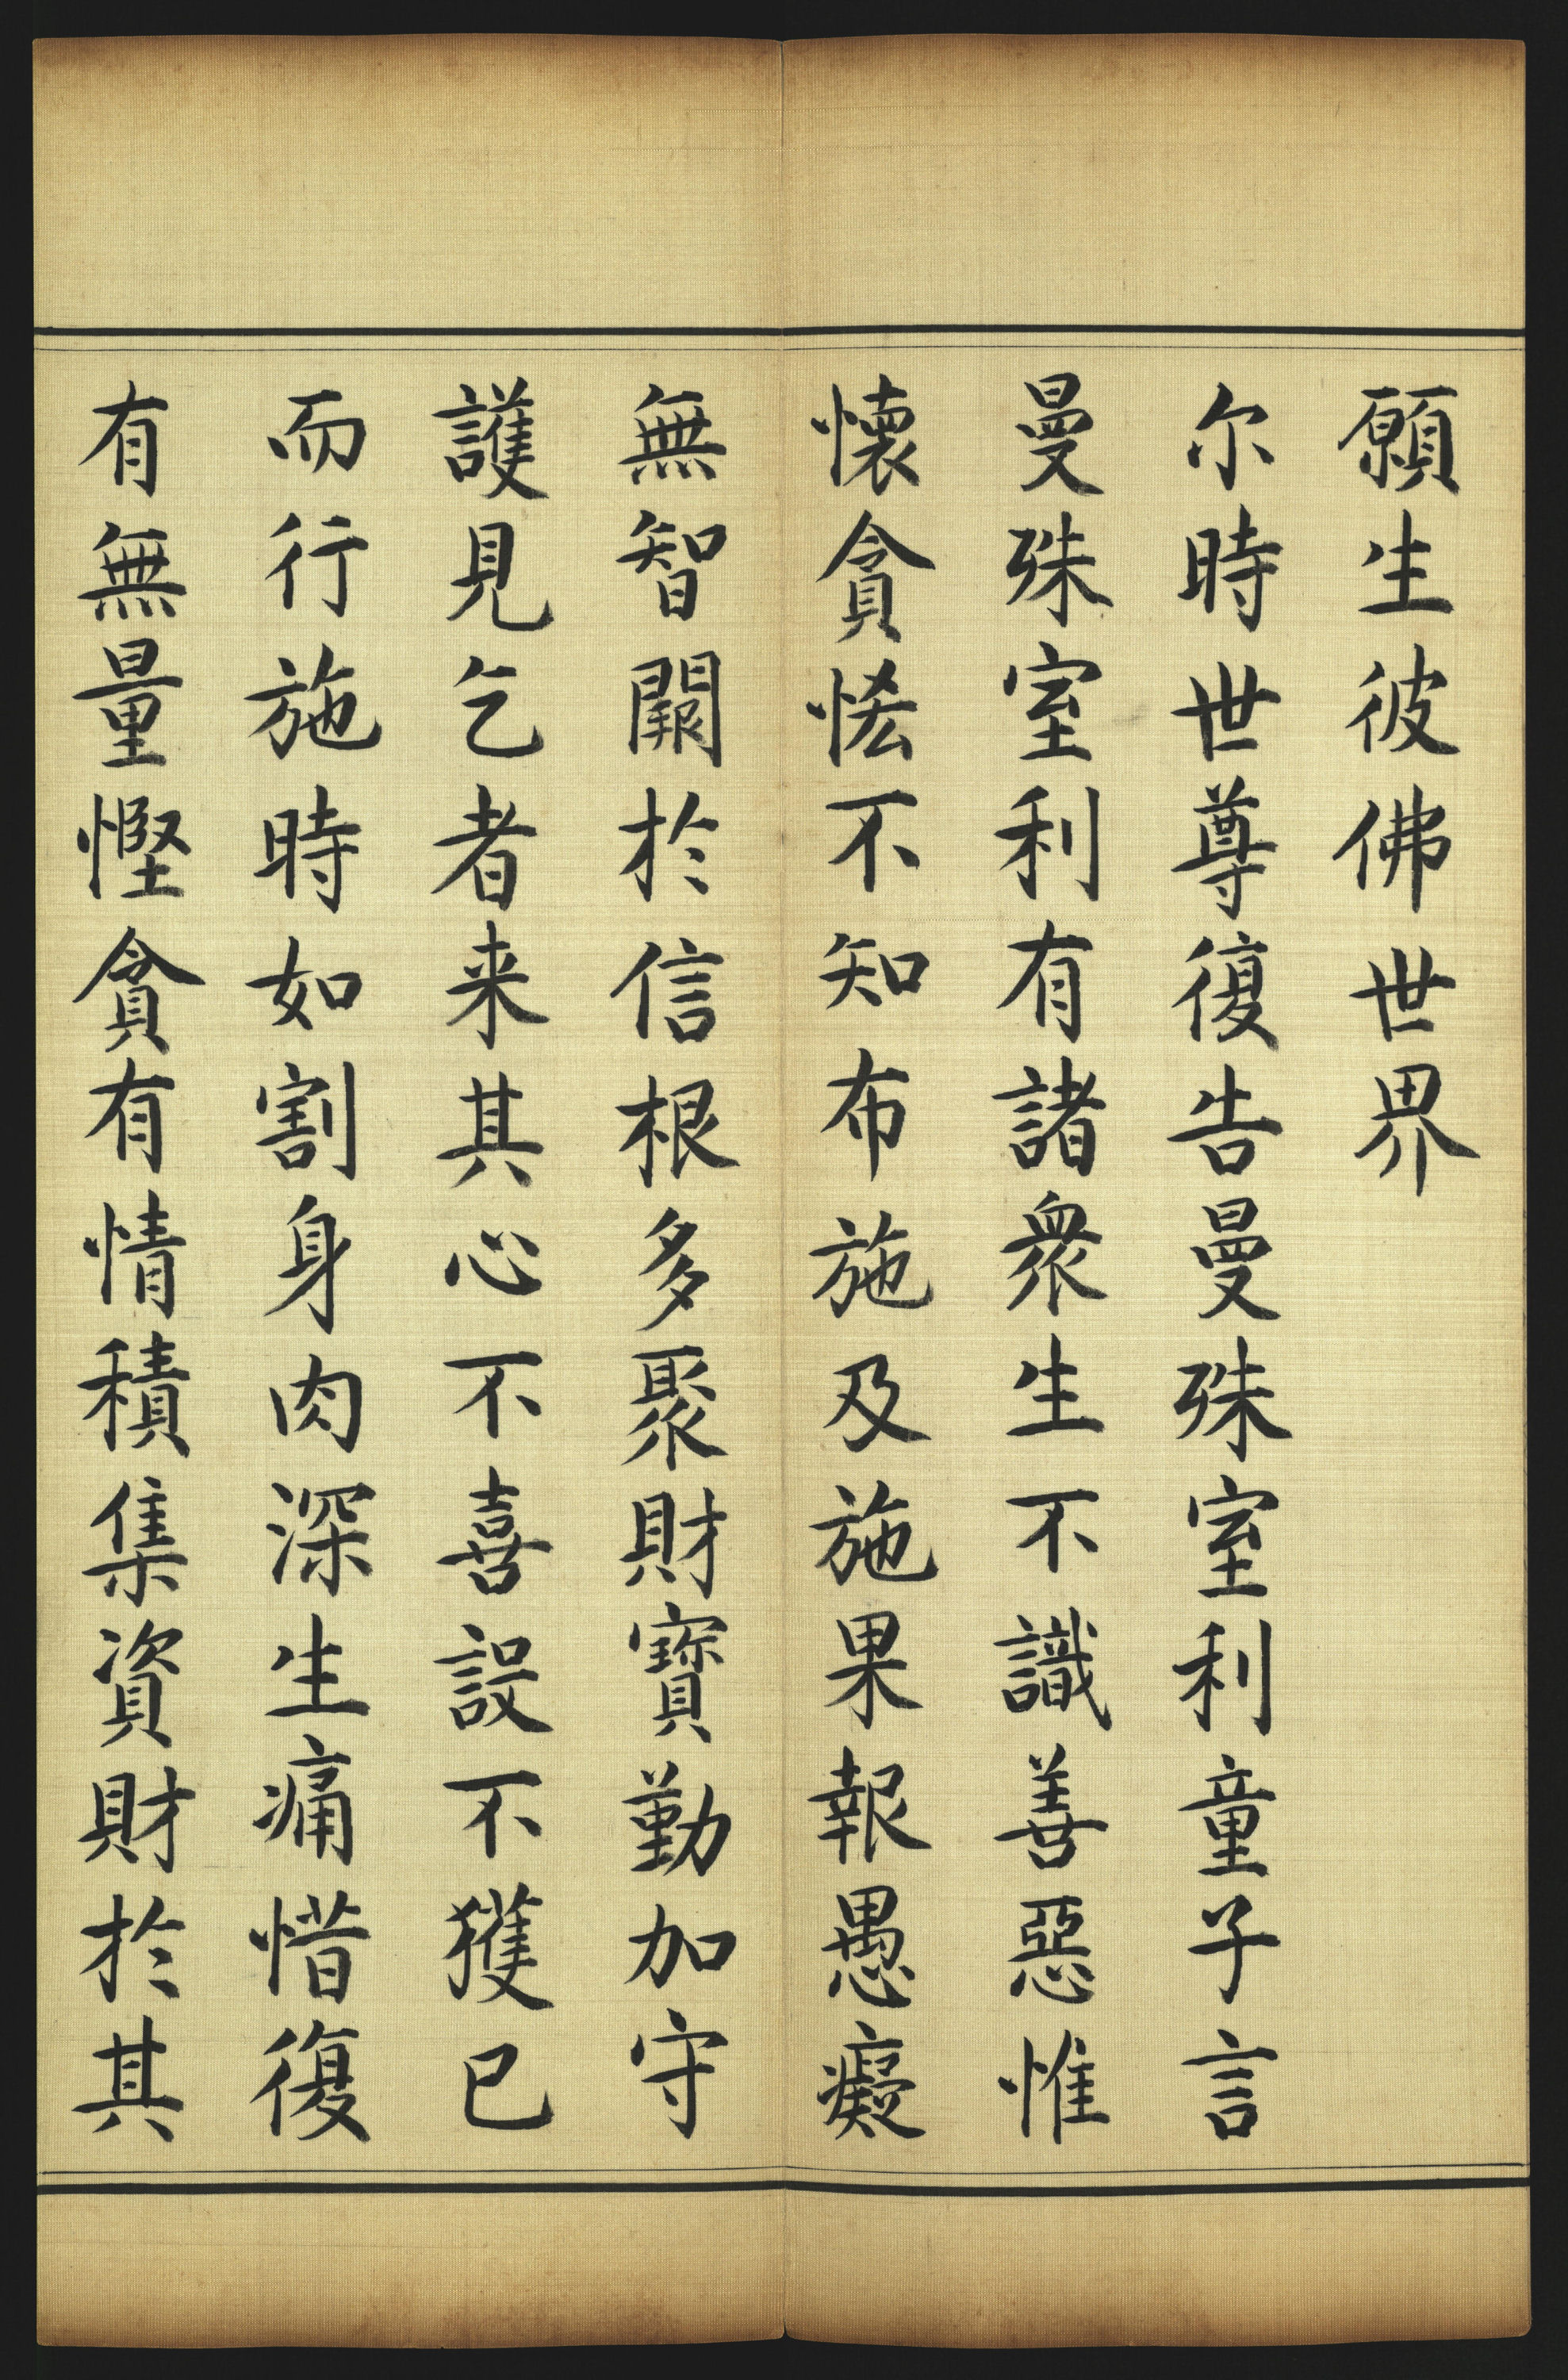 願生彼佛世界
尔時世尊復告曼殊室利童子言
曼殊室利有諸衆生不識善惡惟
懷貪恡不知布施及施果報愚癡
無智闕於信根多聚財寶勤加守
護見乞者来其心不喜設不獲已
而行施時如割身肉深生痛惜復
有無量慳貪有情積集資財於其